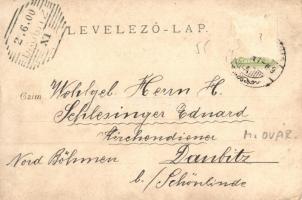 LEVELEZŐ-LAP.
2.6.00
IX
Czim
Wohlgeb. Herrn H.
Schlesinger Eduard
Kirchendiener
M. OVAR.
Nord Böhmen Daubitz
b./Schönlinde